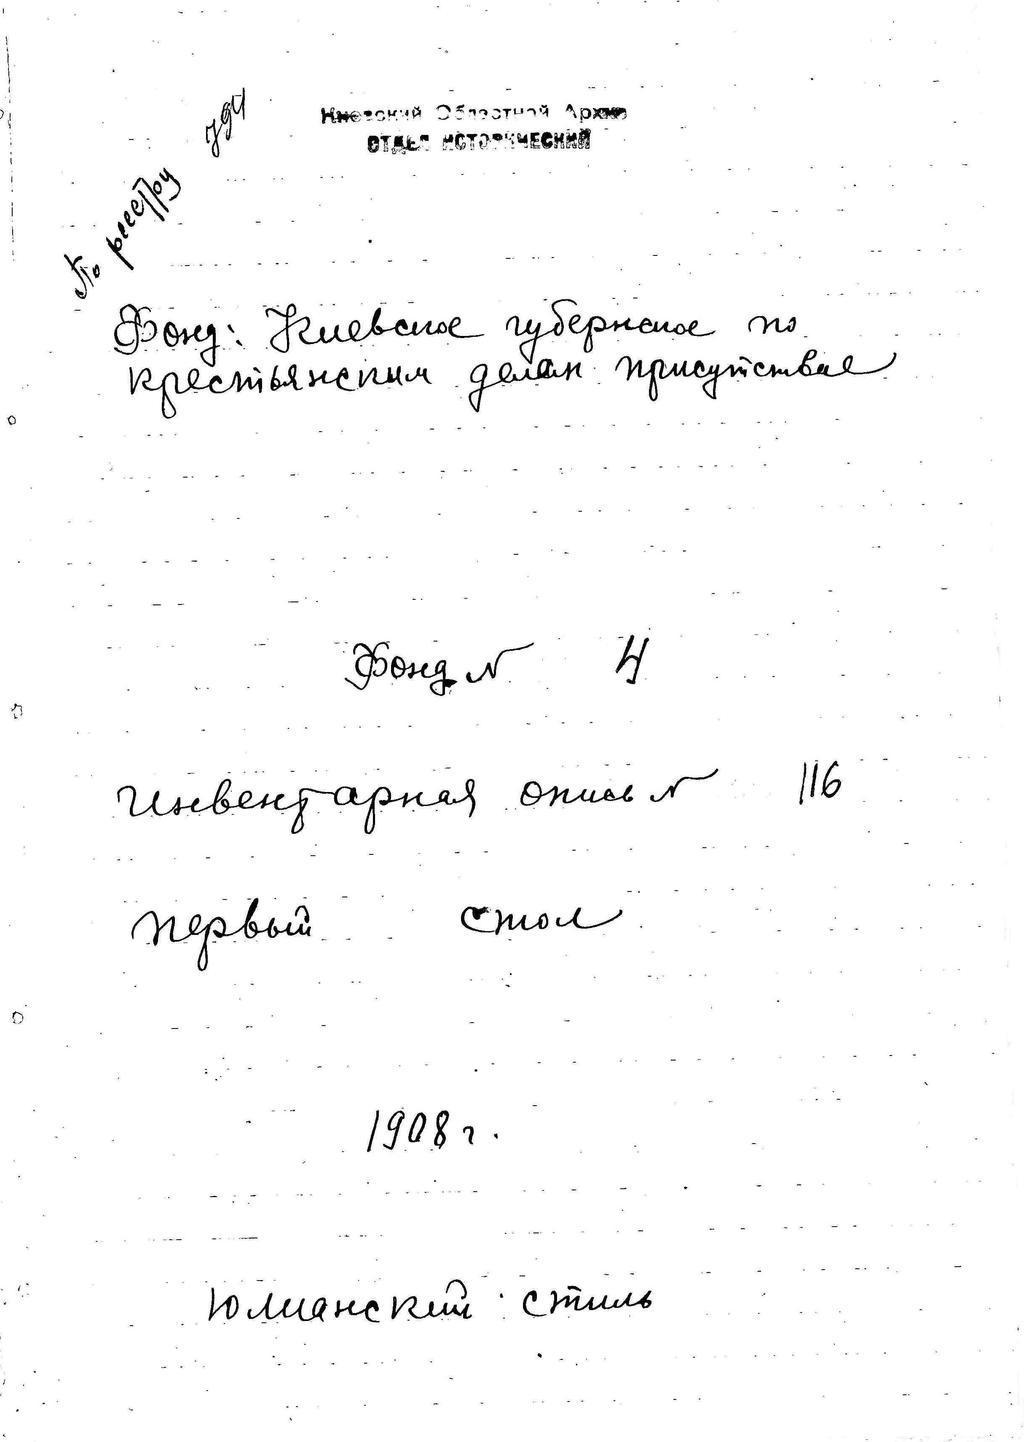 По реестру 794
Киевский Областной Архив
ОТДЕЛ ИСТОРИЧЕСКИЙ
Фонд: Киевское губернское по
крестьянским делам присутствие
Фонд N 4
Инвентарная опись N 116
первый стол
1908 г.
Юлианский стиль